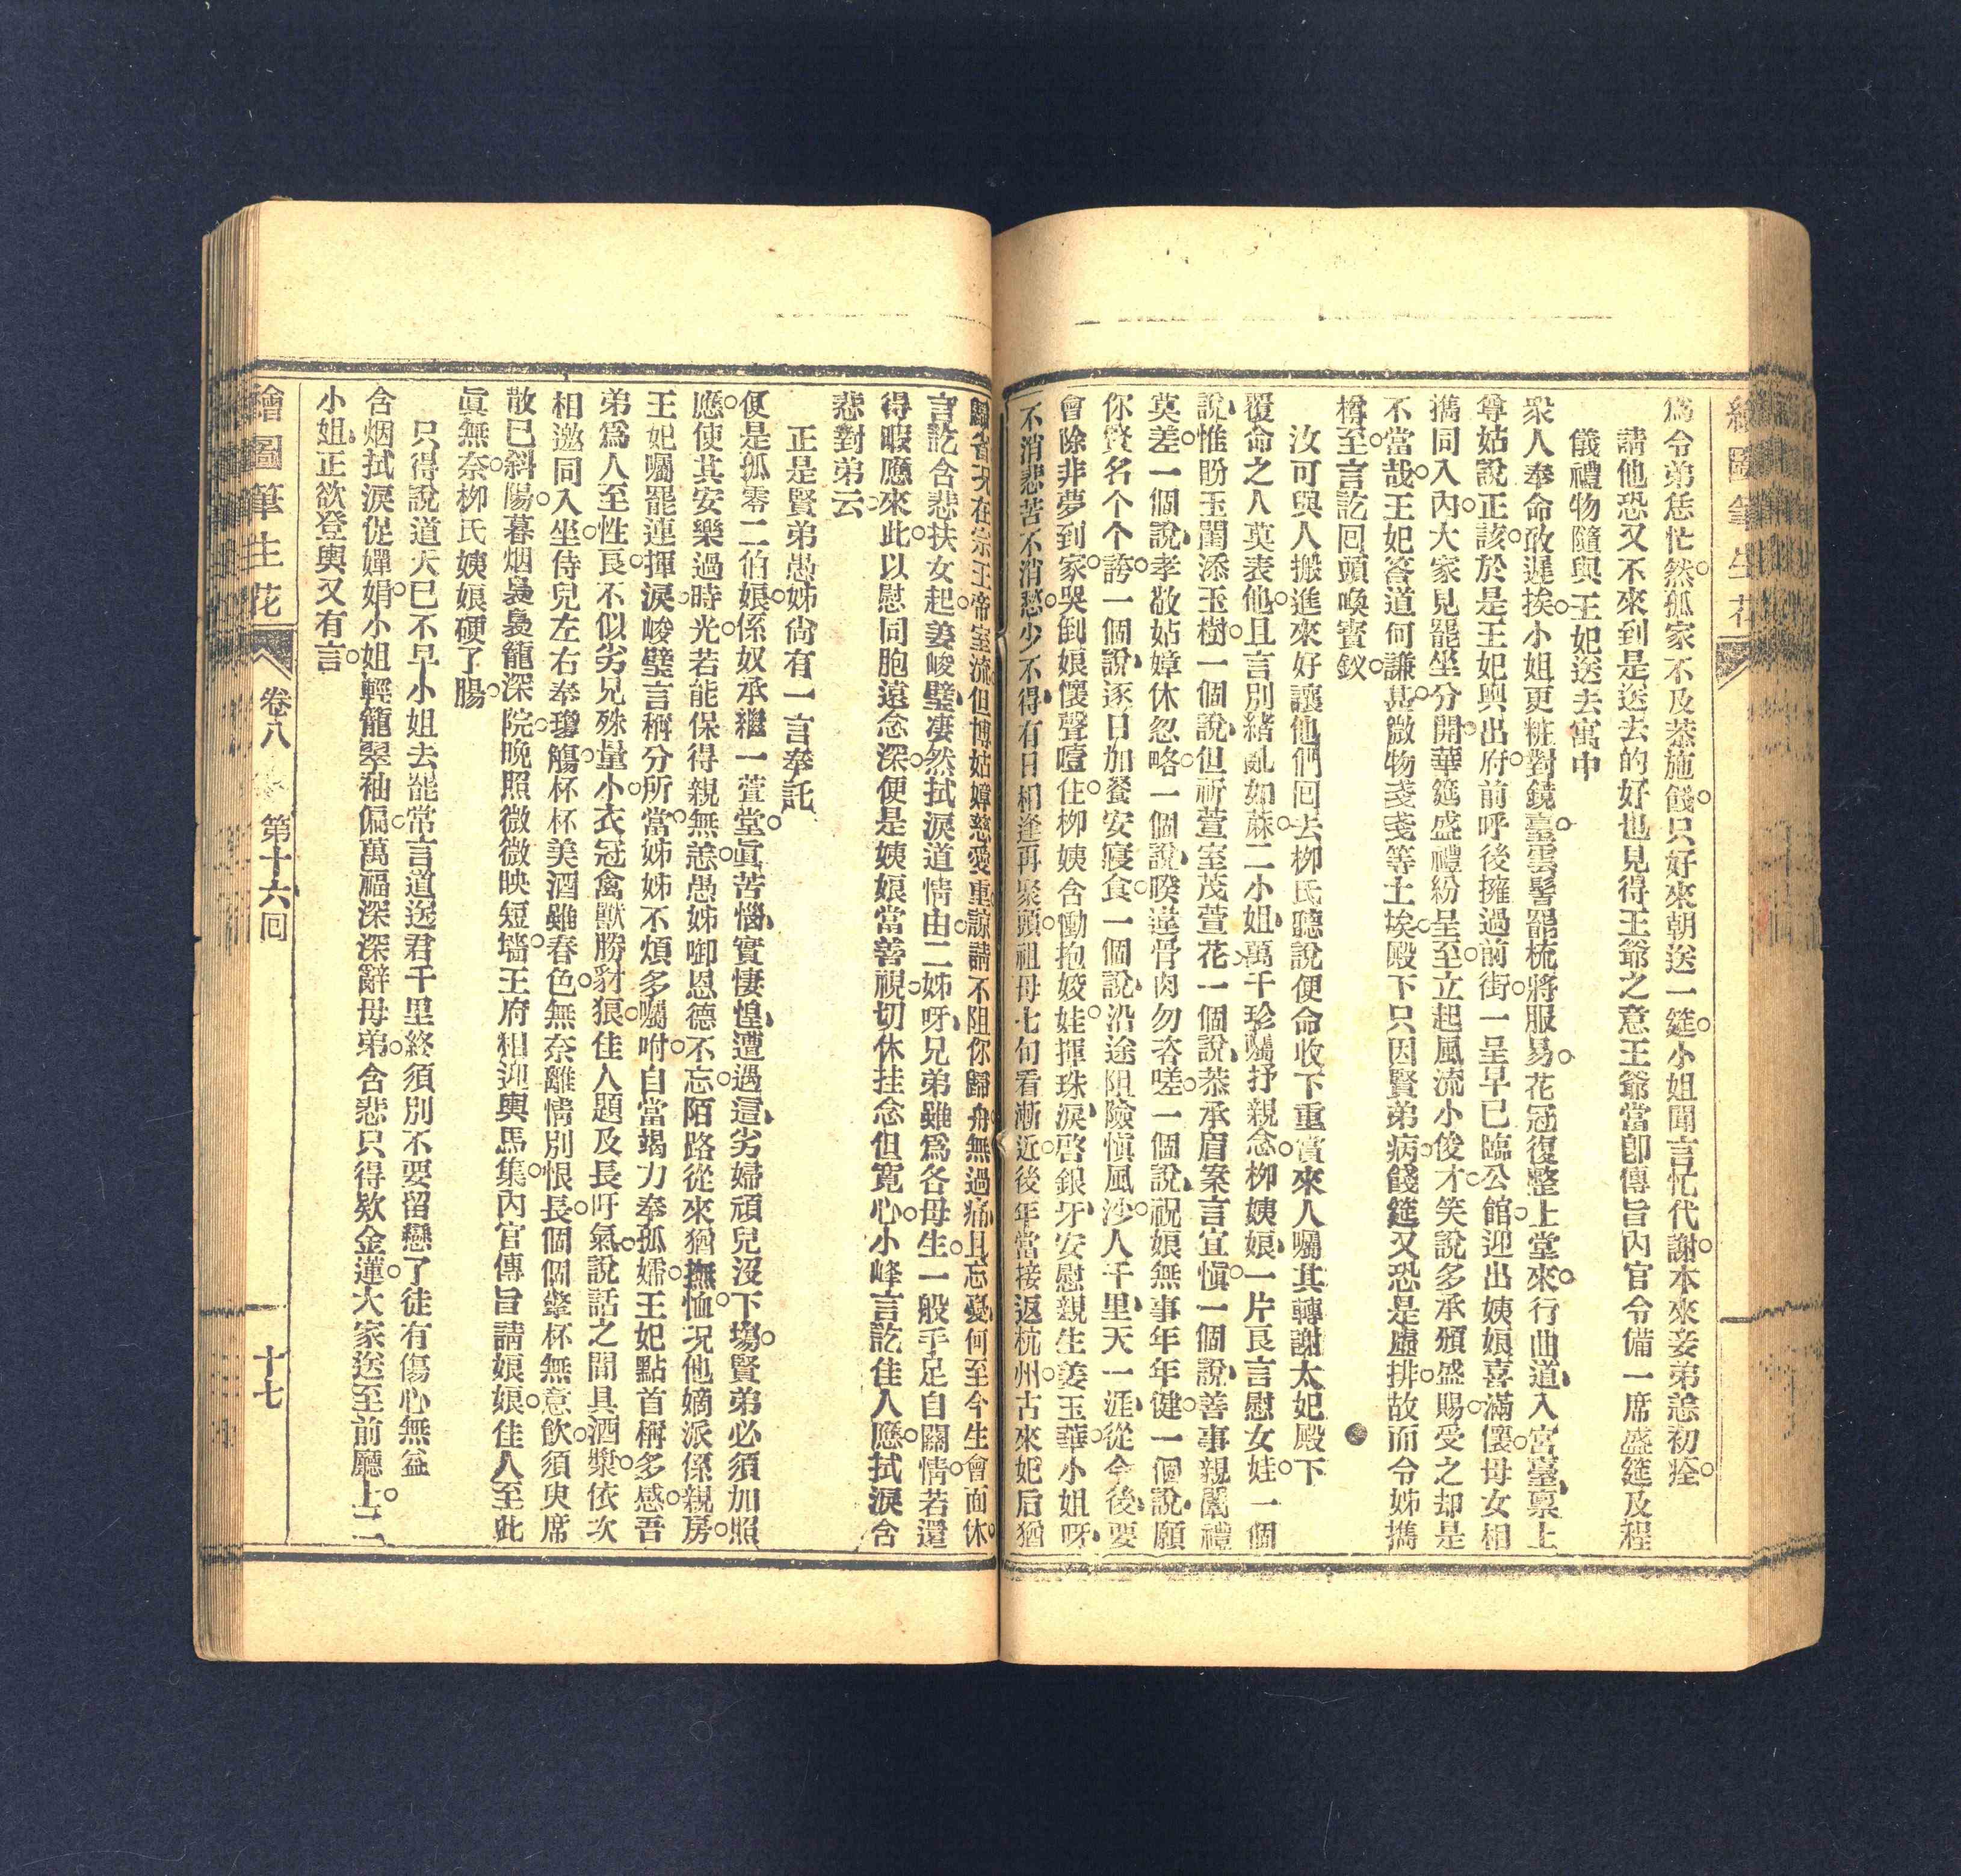 繪圖筆生花
爲令弟恁忙然孤家不及恭施餞只好來朝送一筵小姐聞言忙代謝本來妾弟恙初痊
請他恐又不來到是送去的好也見得王爺之意王爺當卽傳旨內官令備一席盛筵及程
儀禮物隨與王妃送去寓中
衆人奉命敢遲挨小姐更粧對鏡臺雲髻罷梳將服易花冠復整上堂來行曲道入宮臺禀上
尊姑說正該於是王妃輿出府前呼後擁過前街一呈早已臨公館迎出姨娘喜滿懷母女相
擕同入內大家見罷坐分開華筵盛禮紛呈至立起風流小俊才笑說多承頒盛賜受之却是
不當哉王妃答道何謙甚微物戔戔等土埃殿下只因賢弟病餞筵又恐是虛排故而令姊擕
樽至言訖回頭喚寳釵
汝可與人搬進來好讓他們回去柳氏聽說便命收下重賞來人囑其轉謝太妃殿下
覆命之人莫表他且言別緒亂如蔴二小姐萬千珍囑抒親念柳姨娘一片良言慰女娃一個
說惟盼玉閨添玉樹一個說但祈萱室茂萱花一個說恭承眉案言宜愼一個說善事親闈禮
莫差一個說孝敬姑嫜休忽略一個說睽違骨肉勿咨嗟一個說祝娘無事年年健一個說願
你賢名个个誇一個說逐日加餐安寢食一個說沿途阻險愼風沙人千里天一涯從今後要
會除非夢到家哭倒娘懷聲噎住柳姨含慟抱姣娃揮珠淚啓銀牙安慰親生姜玉華小姐呀
不消悲苦不消愁少不得有日相逢再聚頭祖母七旬看漸近後年當接返杭州古來妃后猶
歸省况在宗王帝室流但博姑嫜慈愛重諒請不阻你歸舟無過痛且忘憂何至今生會面休
言訖含悲扶女起姜峻璧凄然拭淚道情由二姊呀兄弟雖爲各母生一般手足自關情若還
得暇應來此以慰同胞遠念深便是姨娘當善視切休挂念但寛心小峰言訖佳人應拭淚含
悲對弟云
正是賢弟愚姊尙有一言奉託
便是孤零二伯娘係奴承繼一萱堂眞苦惱實悽惶遭遇這劣婦頑兒沒下塲賢弟必須加照
應使其安樂過時光若能保得親無恙愚姊啣恩德不忘陌路從來猶撫恤况他嫡派係親房
王妃囑罷連揮淚峻璧言稱分所當姊姊不煩多囑咐自當竭力奉孤孀王妃點首稱多感吾
弟爲人至性良不似劣兄殊量小衣冠禽獸勝豺狼佳人題及長吁氣說話之間具酒漿依次
相邀同入坐侍兒左右奉瓊觴杯杯美酒雖春色無奈離情別恨長個個擎杯無意飲須臾席
散已斜陽暮烟裊裊籠深院晚照微微映短墻王府相迎輿馬集內官傳旨請娘娘佳人至此
眞無奈柳氏姨娘硬了腸
只得說道天已不早小姐去罷常言道送君千里終須別不要留戀了徒有傷心無益
含烟拭淚促嬋娟小姐輕籠翠袖偏萬福深深辭母弟含悲只得欵金蓮大家送至前廳上二
小姐正欲登輿又有言
繪圖筆生花 卷八 第十六回 十七